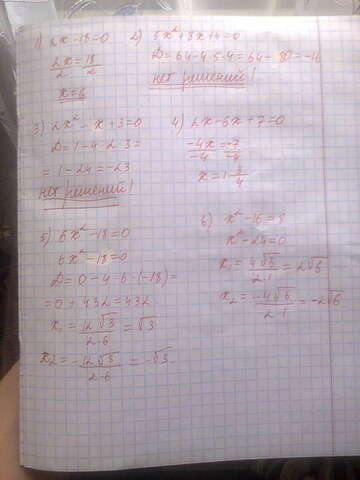 1) 2x-18=0
2x/2 = 18/2
x=6
2) 5x²+8x+4=0
D=64-4·5·4=64-80=-16
нет решений!
3) 2x²-x+3=0
D=1-4·2·3=
=1-24=-23
нет решений!
4) 2x-6x+7=0
-4x/-4 = -7/-4
x=1 3/4
5) 6x²-18=0
6x²-18=0
D=0-4·6·(-18)=
=0+432=432
x₁=12√3/2·6=√3
x₂=-12√3/2·6=-√3
6) x²-16=8
x²-24=0
x₁=4√6/2·1=2√6
x₂=-4√6/2·1=-2√6